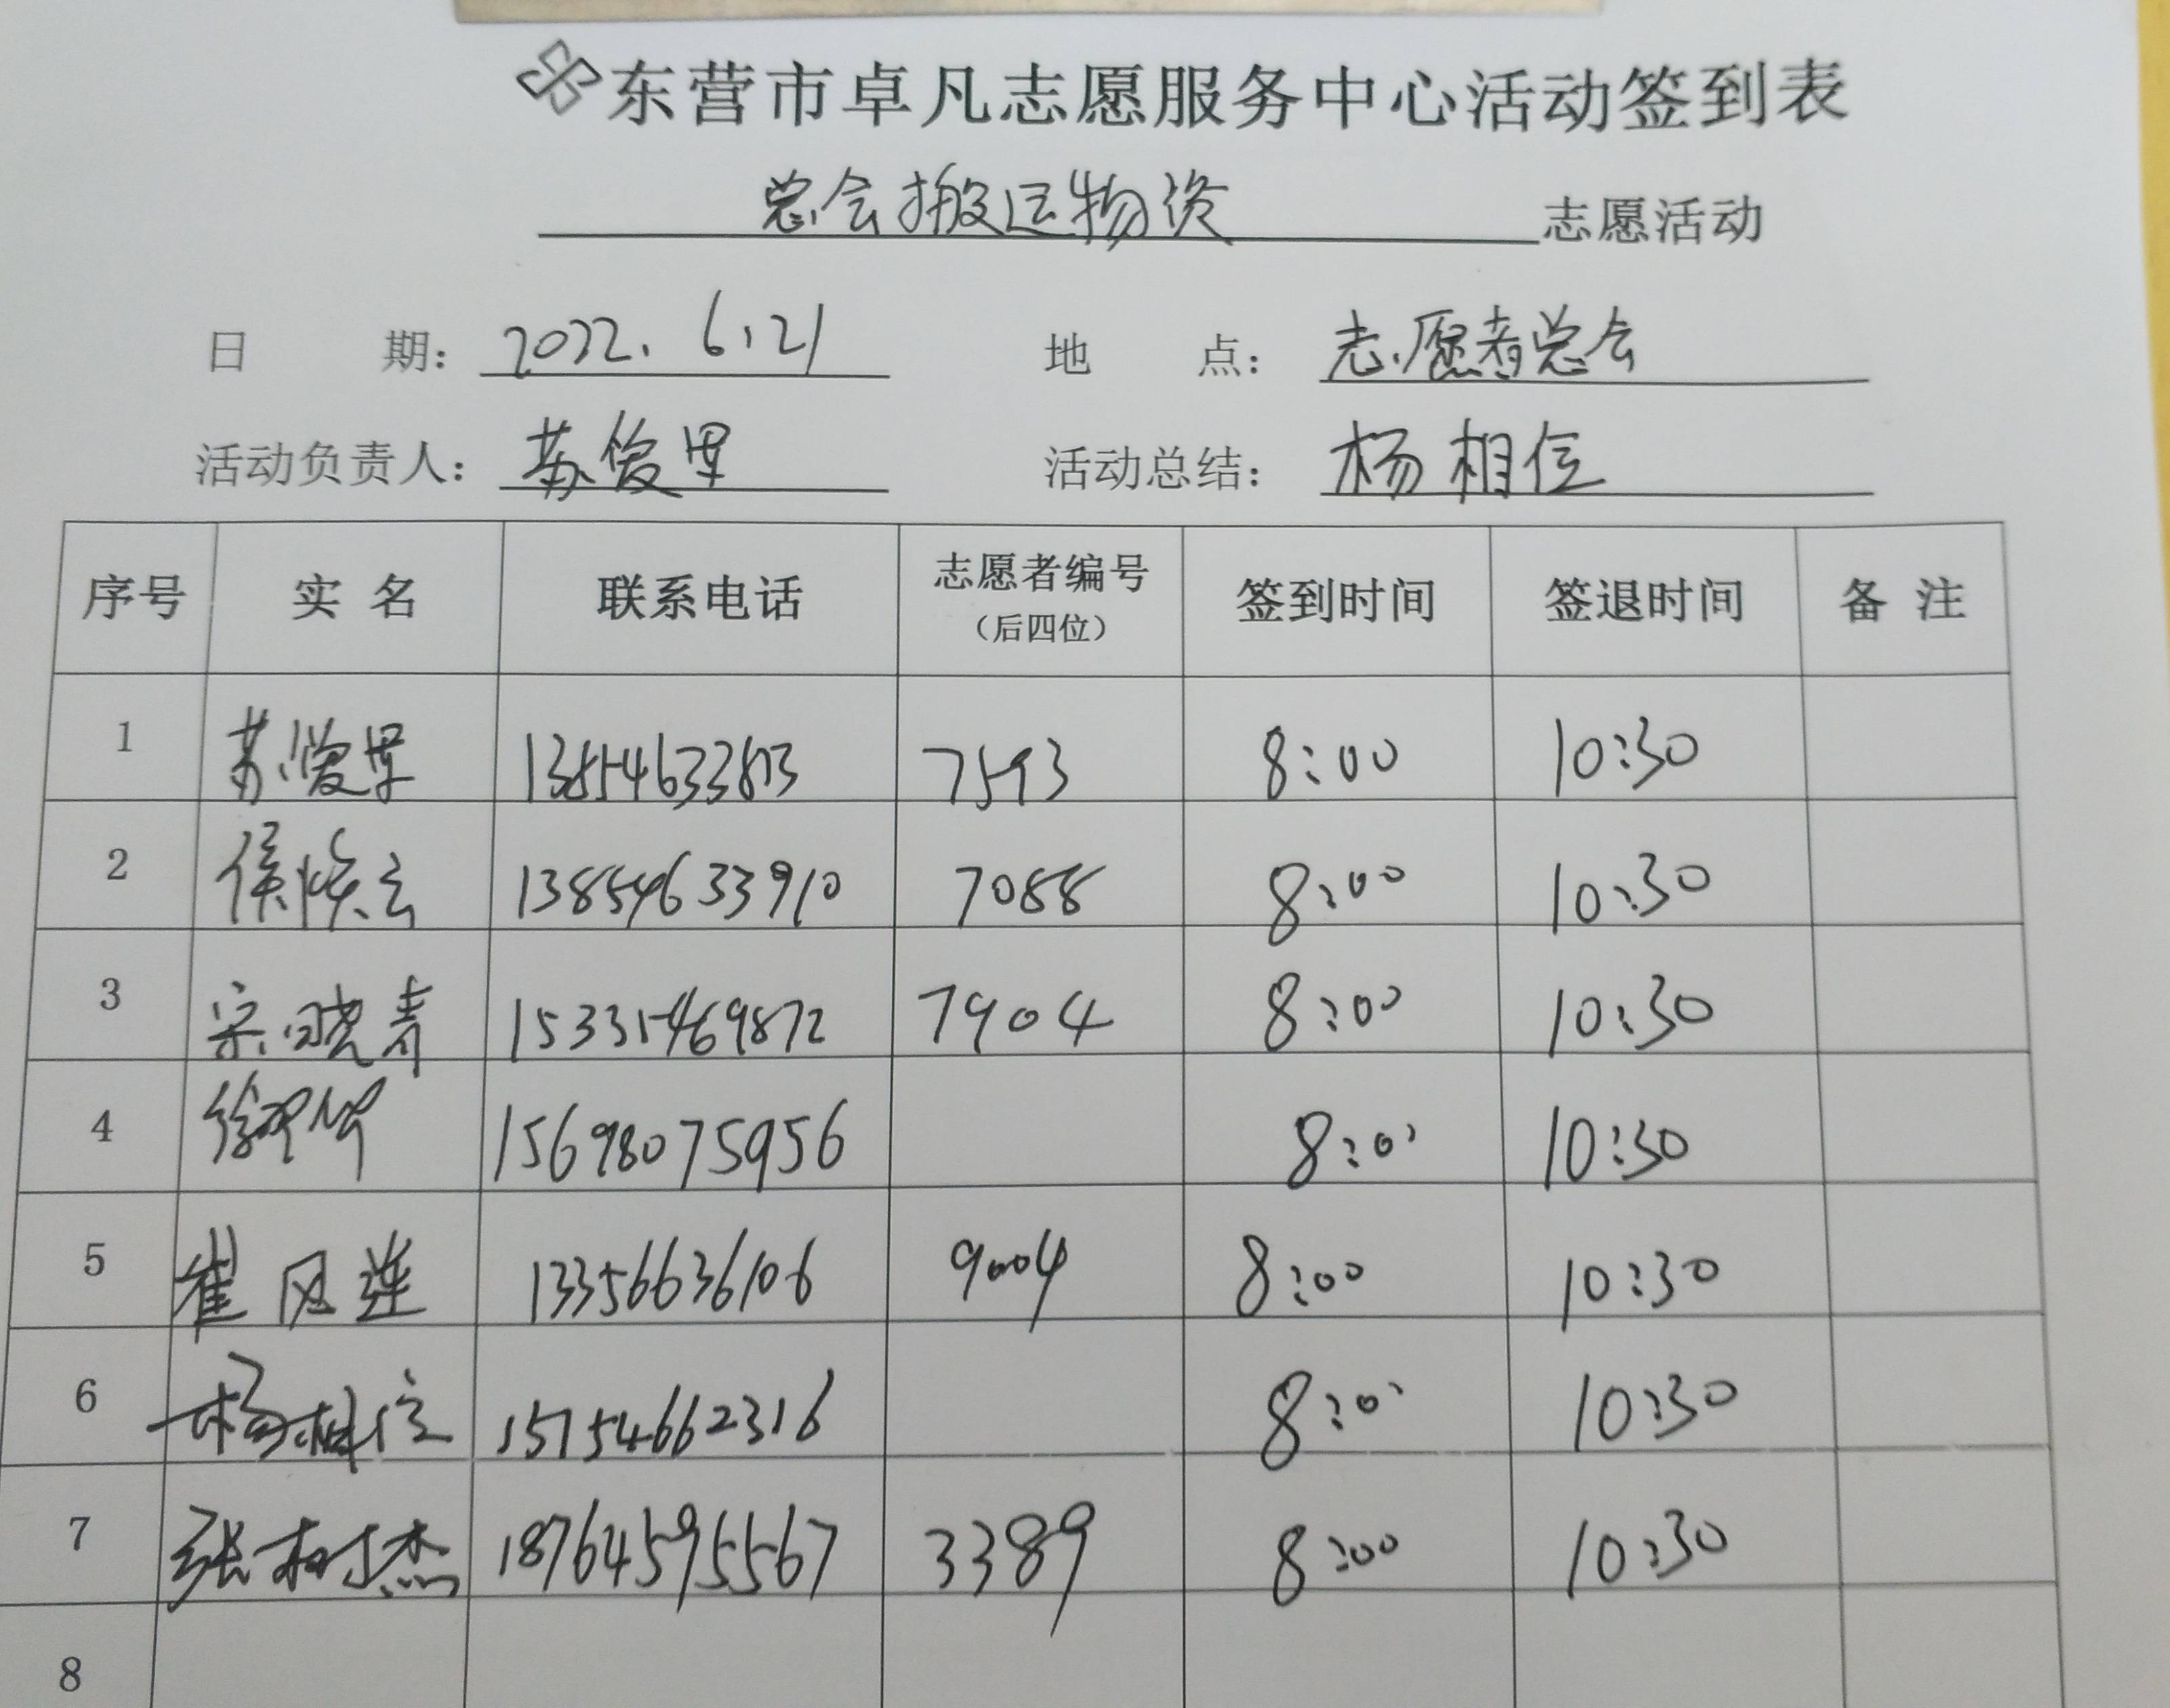 东营市卓凡志愿服务中心活动签到表
总会搬运物资 志愿活动
日 期： 2022. 6.21 地 点： 志愿者总会
活动负责人： 苏俊 活动总结： 杨相位
序号 实 名 联系电话 志愿者编号（后四位） 签到时间 签退时间 备 注
1 苏俊 7593 8:00 10:30
2 侯焕云 13854633910 7088 8:00 10:30
3 宗晓青 15335469872 7904 8:00 10:30
4 徐 15698075956 8:00 10:30
5 崔风莲 13356636106 9004 8:00 10:30
6 杨相位 15754662316 8:00 10:30
7 张树杰 18764595567 3389 8:00 10:30
8